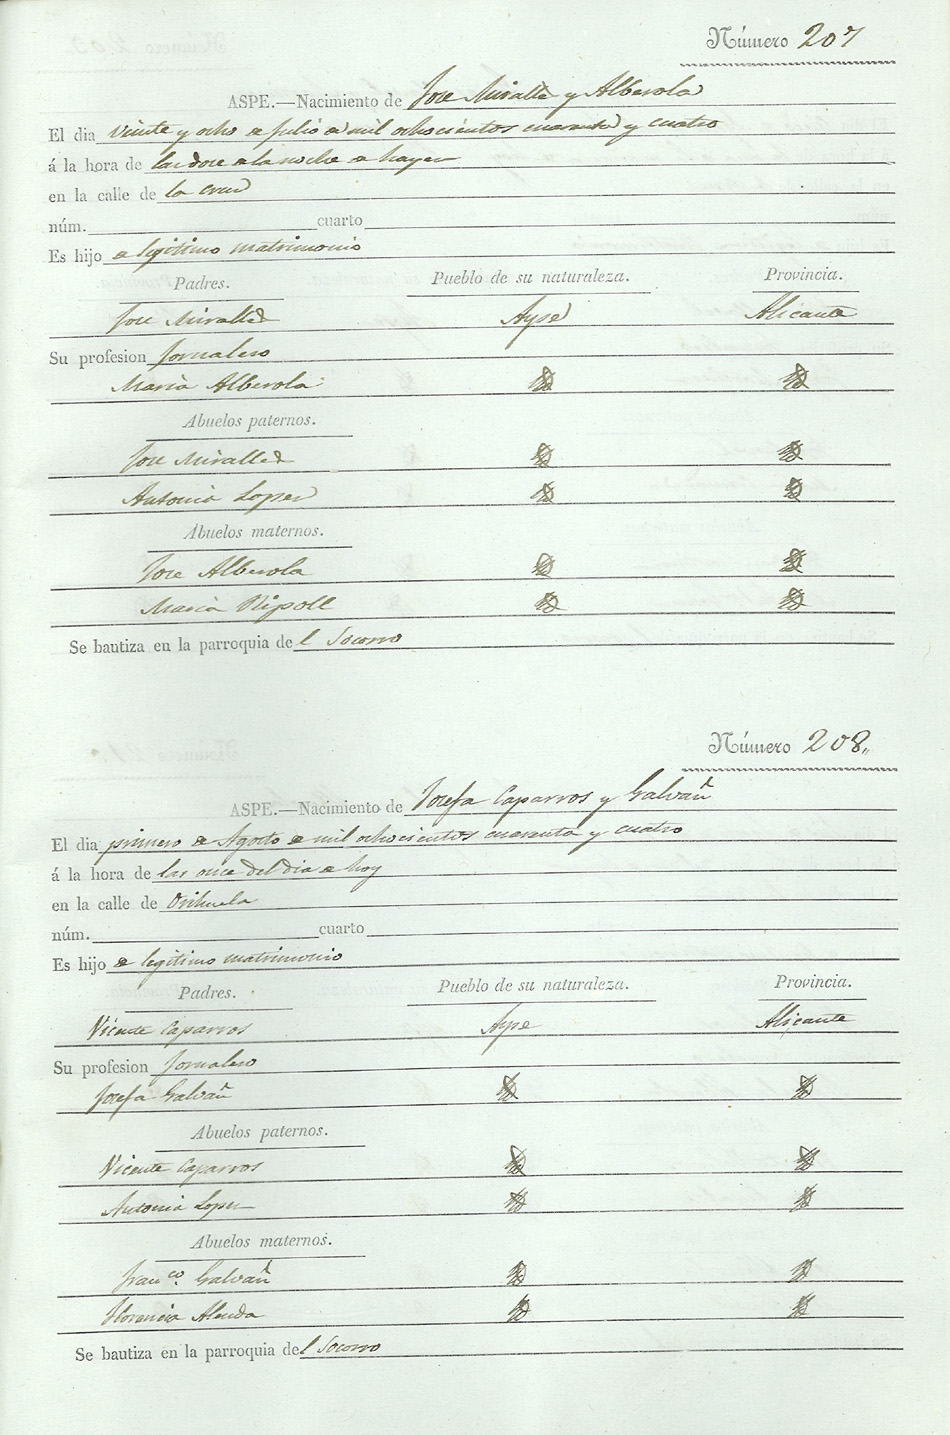 Número 207
ASPE.—Nacimiento de Jose Miralles y Alberola
El dia veinte y ocho de Julio de mil ochocientos cuarenta y cuatro
á la hora de las doce de la noche de hayer
en la calle de la Cruz
núm. cuarto
Es hijo de legitimo matrimonio
Padres. Pueblo de su naturaleza. Provincia.
Jose Miralles Aspe Alicante
Su profesion Jornalero
Maria Alberola
Abuelos paternos.
Jose Miralles
Antonia Lopez
Abuelos maternos.
Jose Alberola
Maria Ripoll
Se bautiza en la parroquia del Socorro
Número 208
ASPE.—Nacimiento de Josefa Caparros y Galvañ
El dia primero de Agosto de mil ochocientos cuarenta y cuatro
á la hora de las once del dia de hoy
en la calle de Orihuela
núm. cuarto
Es hijo de legitimo matrimonio
Padres. Pueblo de su naturaleza. Provincia.
Vicente Caparros Aspe Alicante
Su profesion Jornalero
Josefa Galvañ
Abuelos paternos.
Vicente Caparros
Antonia Lopez
Abuelos maternos.
Franco. Galvañ
Florencia Alenda
Se bautiza en la parroquia del Socorro